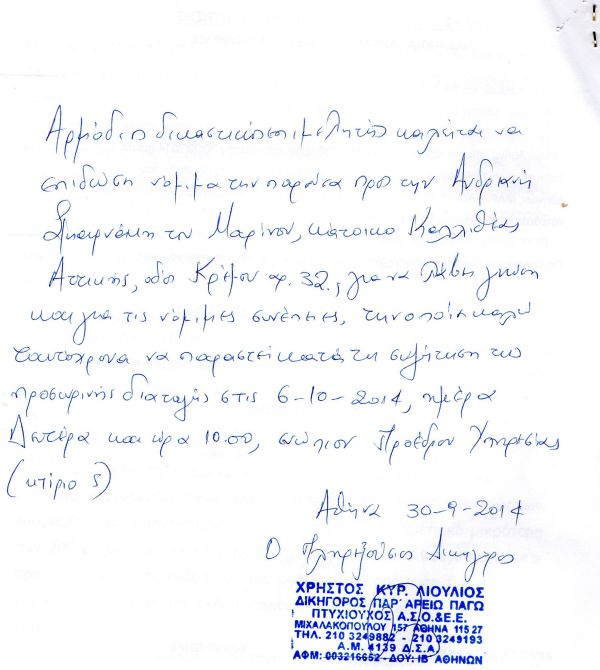 Αρμόδιος δικαστικός επιμελητής καλείται να
επιδώση νόμιμα την παρούσα προς την Ανδριανή
του Μαρίνου, κάτοικο Καλλιθέας
Αττικής, οδός Κρέμου αρ. 32, για να λάβη γνώση
και για τις νόμιμες συνέπειες, την οποία καλώ
ταυτόχρονα να παραστεί κατά τη συζήτηση της
προσωρινής διαταγής στις 6-10-2014, ημέρα
Δευτέρα και ώρα 10.00, ενώπιον Προέδρου Υπηρεσίας
(κτίριο 5)
Αθήνα 30-9-2014
Ο Πληρεξούσιος Δικηγόρος
ΧΡΗΣΤΟΣ ΚΥΡ. ΛΙΟΥΛΙΟΣ
ΔΙΚΗΓΟΡΟΣ ΠΑΡ' ΑΡΕΙΩ ΠΑΓΩ
ΠΤΥΧΙΟΥΧΟΣ Α.Σ.Ο.&Ε.Ε.
ΜΙΧΑΛΑΚΟΠΟΥΛΟΥ 157 ΑΘΗΝΑ 115 27
ΤΗΛ. 210 3249882 - 210 3249193
Α.Μ. 4139 Δ.Σ.Α
ΑΦΜ: 003216652 - ΔΟΥ: ΙΒ ΑΘΗΝΩΝ